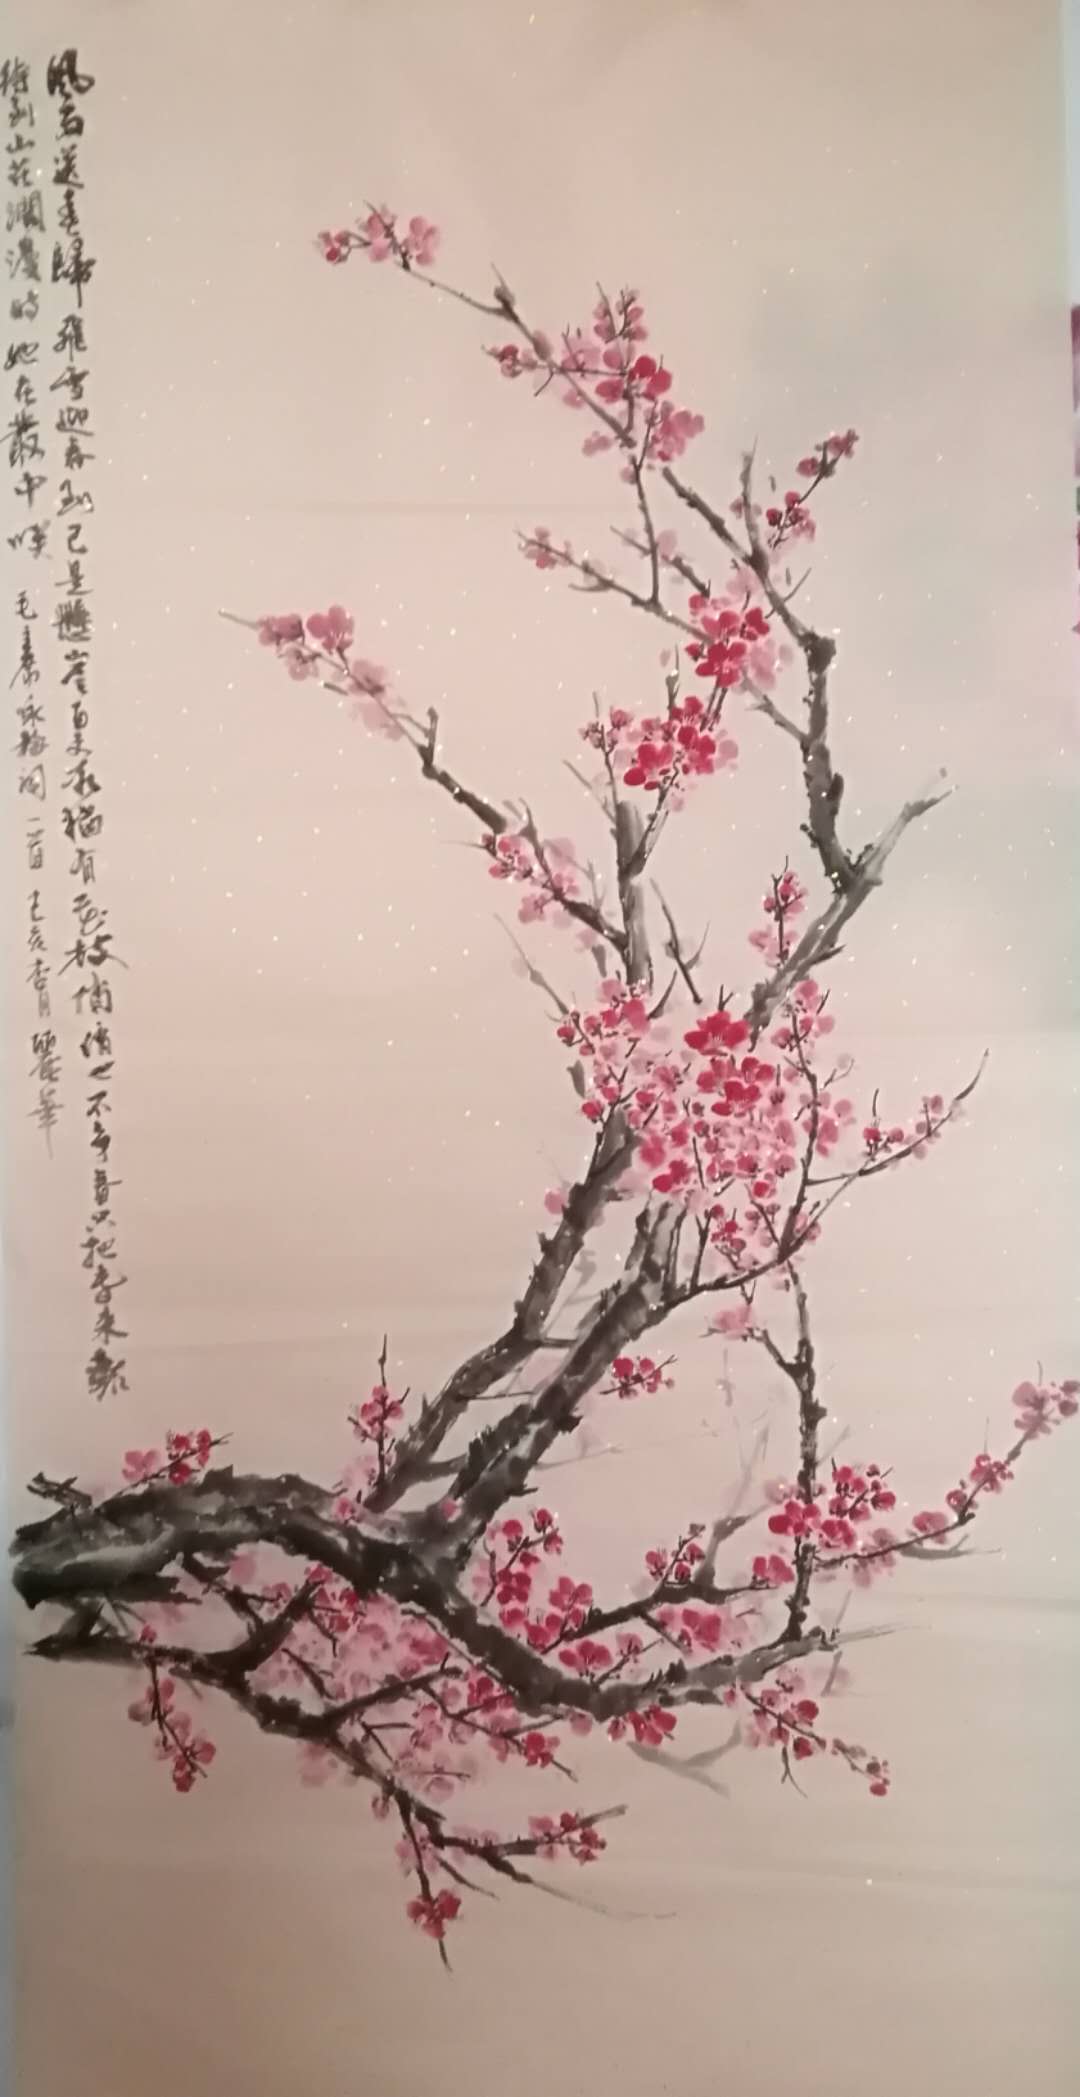 風雨送春歸飛雪迎春到已是懸崖百丈冰猶有花枝俏俏也不争春只把春來報
待到山花瀾漫時她在叢中笑 毛主席咏梅詞一首 己亥杏月 麗華